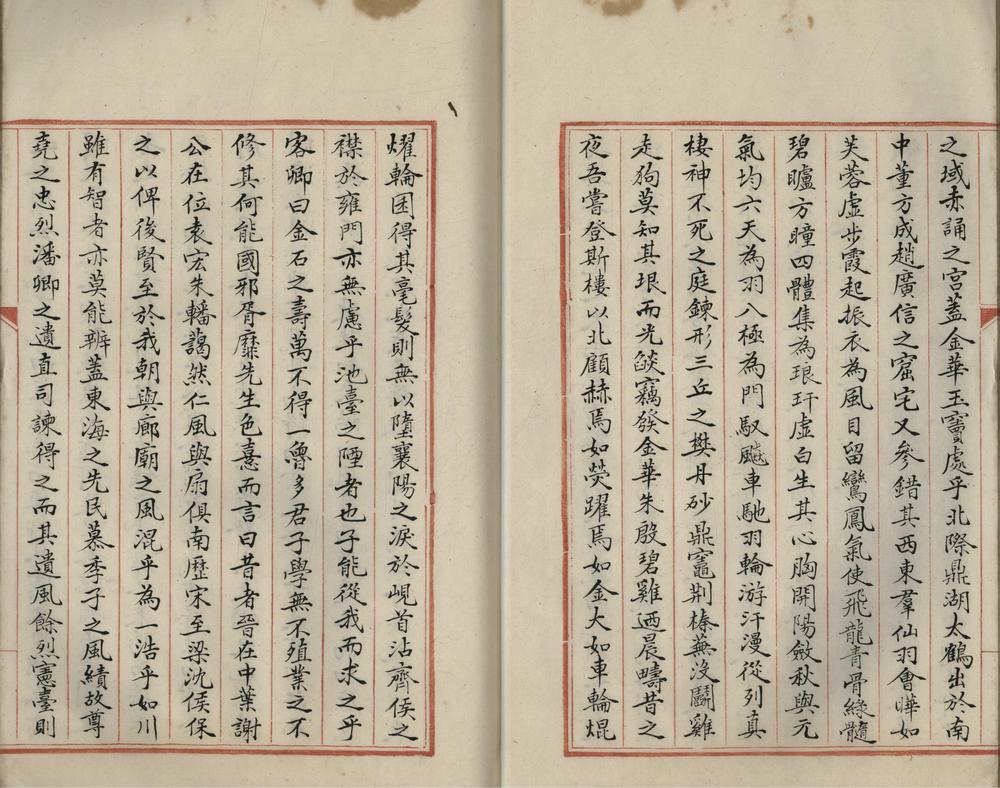 之域赤誦之宮蓋金華玉竇處乎北際鼎湖太鶴出於南
中董方成趙廣信之窟宅又參錯其西東羣仙羽會曄如
芙蓉虚步霞起振衣為風目留鸞鳳氣使飛龍青骨綠髓
碧矑方瞳四體集為琅玕虚白生其心胸開陽斂秋與元
氣均六天為羽八極為門馭飈車馳羽輪游汗漫從列真
棲神不死之庭鍊形三丘之樊丹砂鼎竈荆榛蕪沒鬬雞
走狗莫知其垠而光燄竊發金華朱殷碧雞迺晨疇昔之
夜吾嘗登斯樓以北顧赫焉如熒躍焉如金大如車輪焜
燿輪囷得其毫髮則無以墮襄陽之淚於峴首沾齊侯之
襟於雍門亦無慮乎池臺之陻者也子能從我而求之乎
客卿曰金石之壽萬不得一魯多君子學無不殖業之不
修其何能國邪胥靡先生色憙而言曰昔者晉在中葉謝
公在位袁宏朱轓藹然仁風與扇俱南歷宋至梁沈侯保
之以俾後賢至於我朝與廊廟之風混乎為一浩乎如川
雖有智者亦莫能辨蓋東海之先民慕季子之風績故尊
堯之忠烈潘卿之遺直司諫得之而其遺風餘烈憲臺則